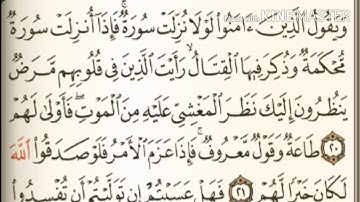 Made with
KINEMASTER
وَيَقُولُ ٱلَّذِينَ ءَامَنُوا۟ لَوْلَا نُزِّلَتْ سُورَةٌ ۖ فَإِذَآ أُنزِلَتْ سُورَةٌ
مُّحْكَمَةٌ وَذُكِرَ فِيهَا ٱلْقِتَالُ ۙ رَأَيْتَ ٱلَّذِينَ فِى قُلُوبِهِم مَّرَضٌ
يَنظُرُونَ إِلَيْكَ نَظَرَ ٱلْمَغْشِىِّ عَلَيْهِ مِنَ ٱلْمَوْتِ ۖ فَأَوْلَىٰ لَهُمْ
۝٢٠ طَاعَةٌ وَقَوْلٌ مَّعْرُوفٌ ۚ فَإِذَا عَزَمَ ٱلْأَمْرُ فَلَوْ صَدَقُوا۟ ٱللَّهَ
لَكَانَ خَيْرًا لَّهُمْ ۝٢١ فَهَلْ عَسَيْتُمْ إِن تَوَلَّيْتُمْ أَن تُفْسِدُوا۟